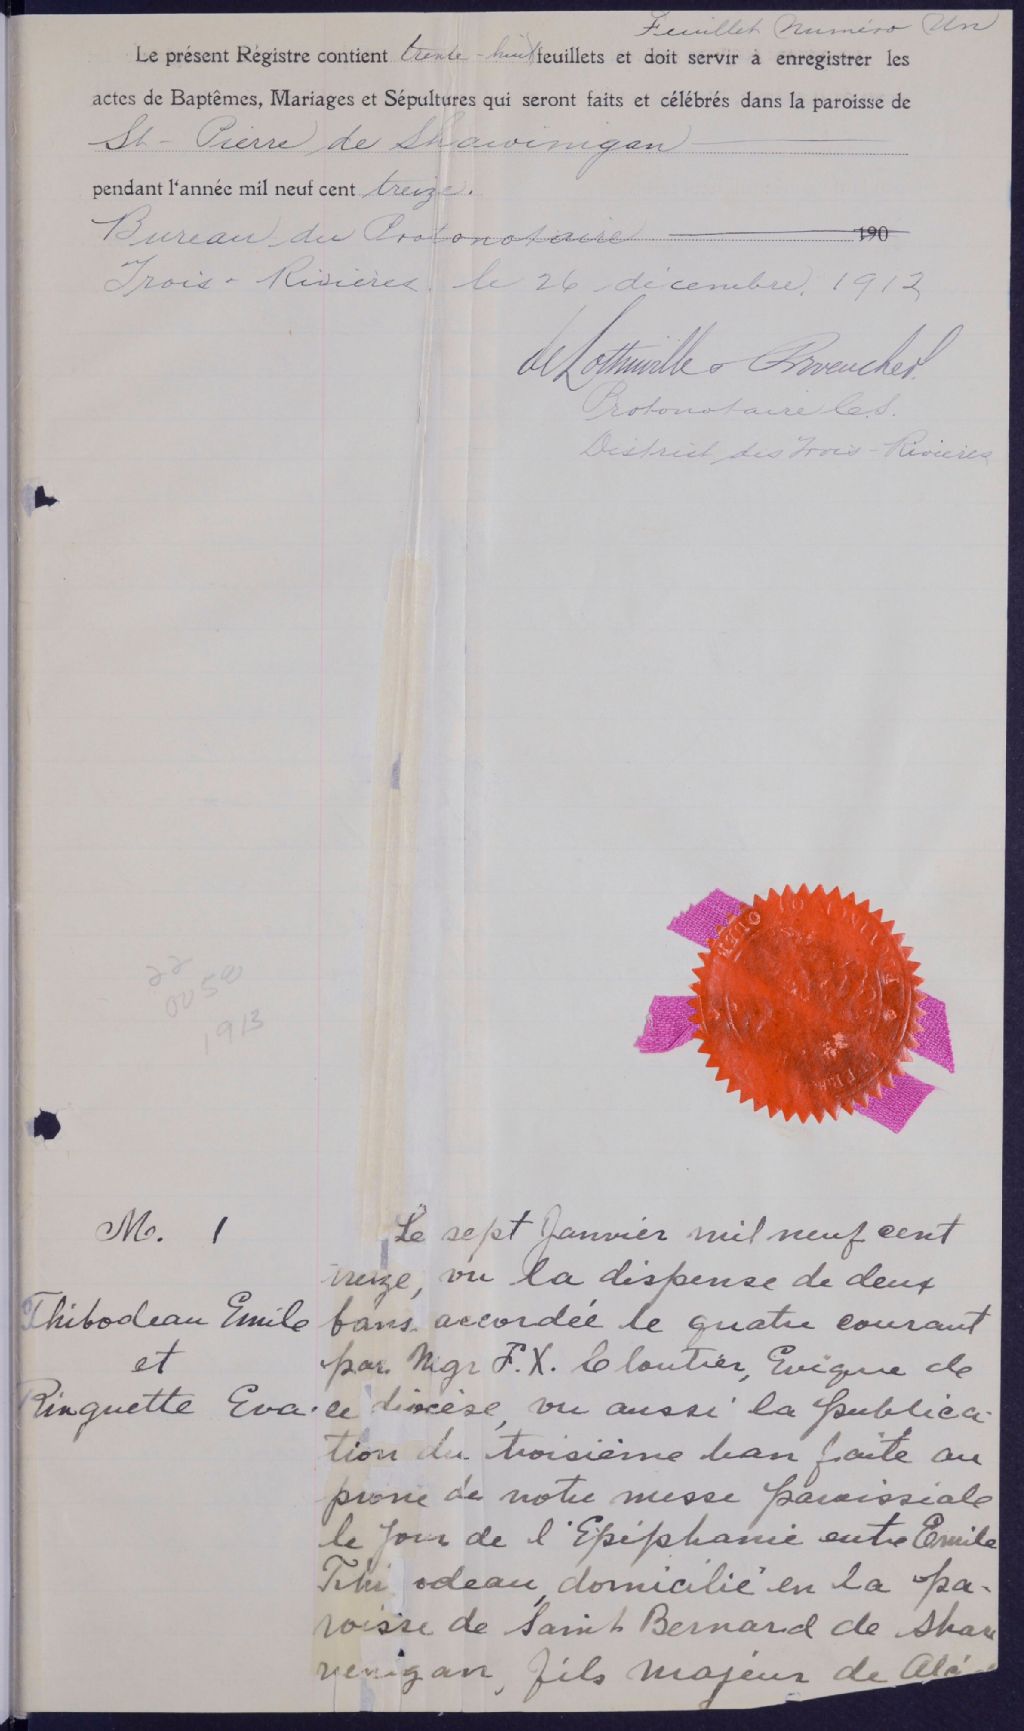 Feuillet Numéro Un
Le présent Régistre contient trente-huit feuillets et doit servir à enregistrer les
actes de Baptêmes, Mariages et Sépultures qui seront faits et célébrés dans la paroisse de
St-Pierre de Shawinigan
pendant l'année mil neuf cent treize.
Bureau du Protonotaire 190
Trois-Rivières le 26 décembre 1912
de Lottinville & Provencher
Protonotaire C.S.
District des Trois-Rivières
22
0050
1913
M. 1
Thibodeau Emile
et
Ringuette Eva.
Le sept Janvier mil neuf cent
treize, vu la dispense de deux
bans accordée le quatre courant
par Mgr F.X. Cloutier, Evêque de
ce diocèse, vu aussi la publica-
tion du troisième ban faite au
prone de notre messe paroissiale
le jour de l'Epiphanie entre Emile
Thi odeau, domicilié en la pa-
roisse de Saint Bernard de Shaw
venigan, fils majeur de